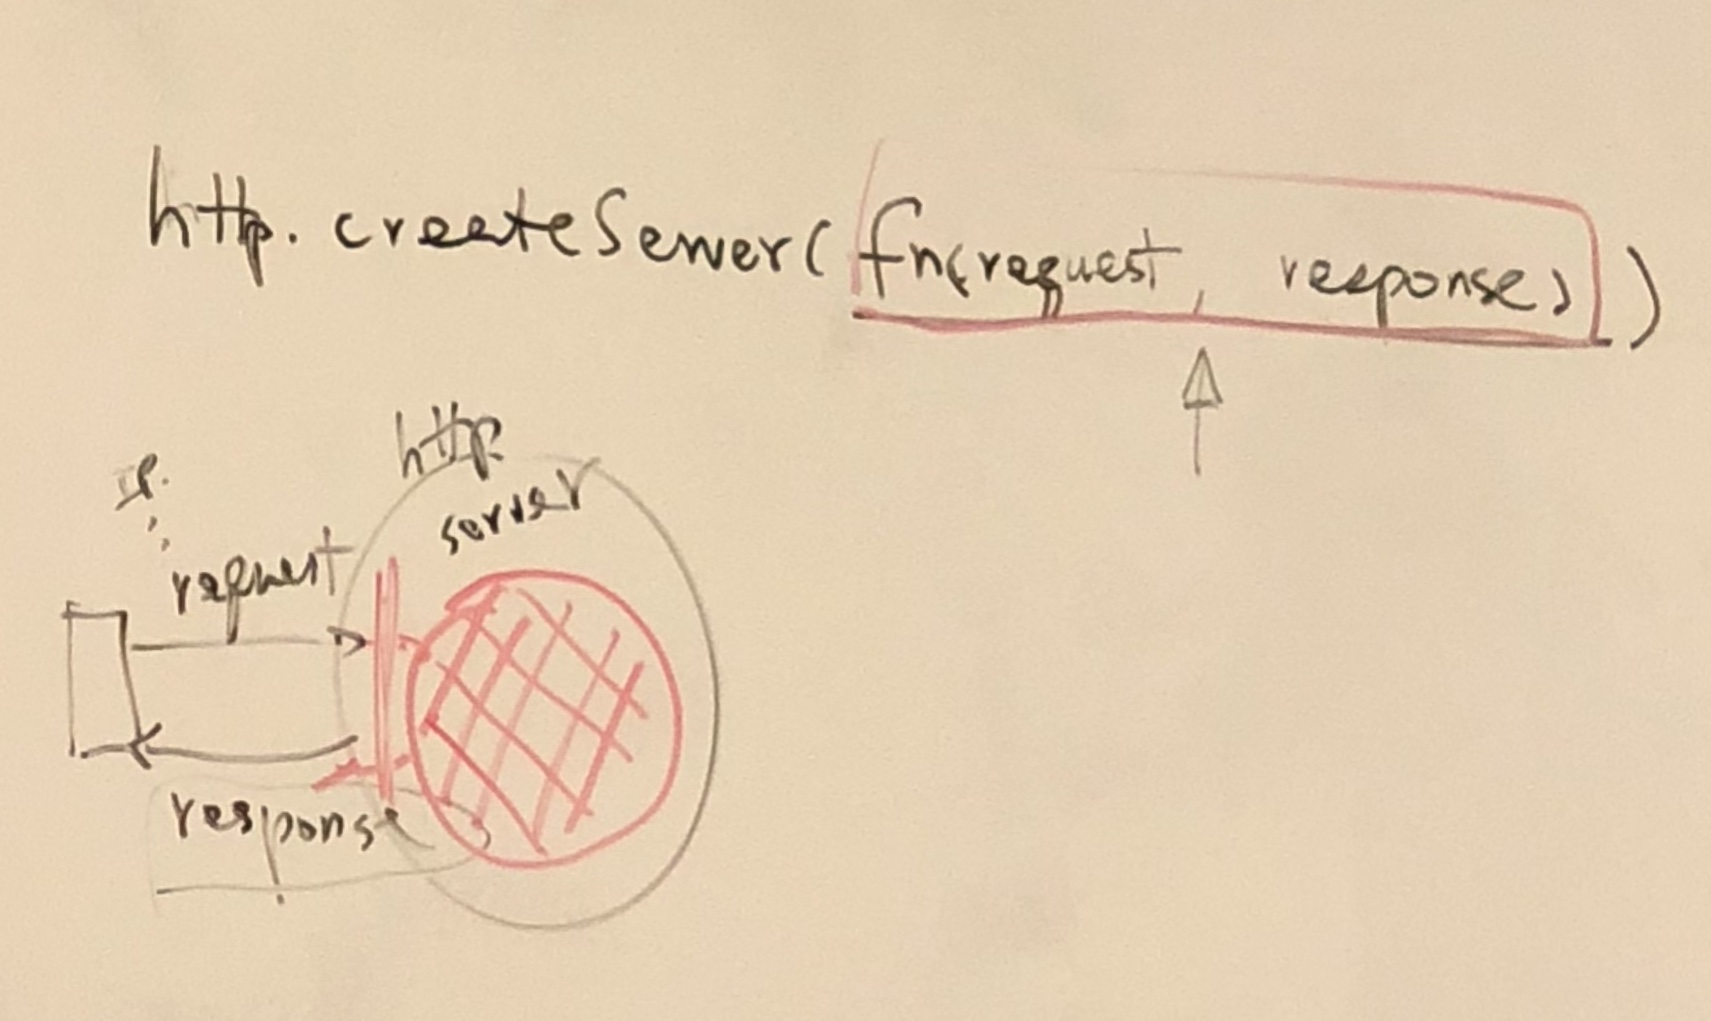 http.createServer(fn(request, response))
http
server
IP.
request
response